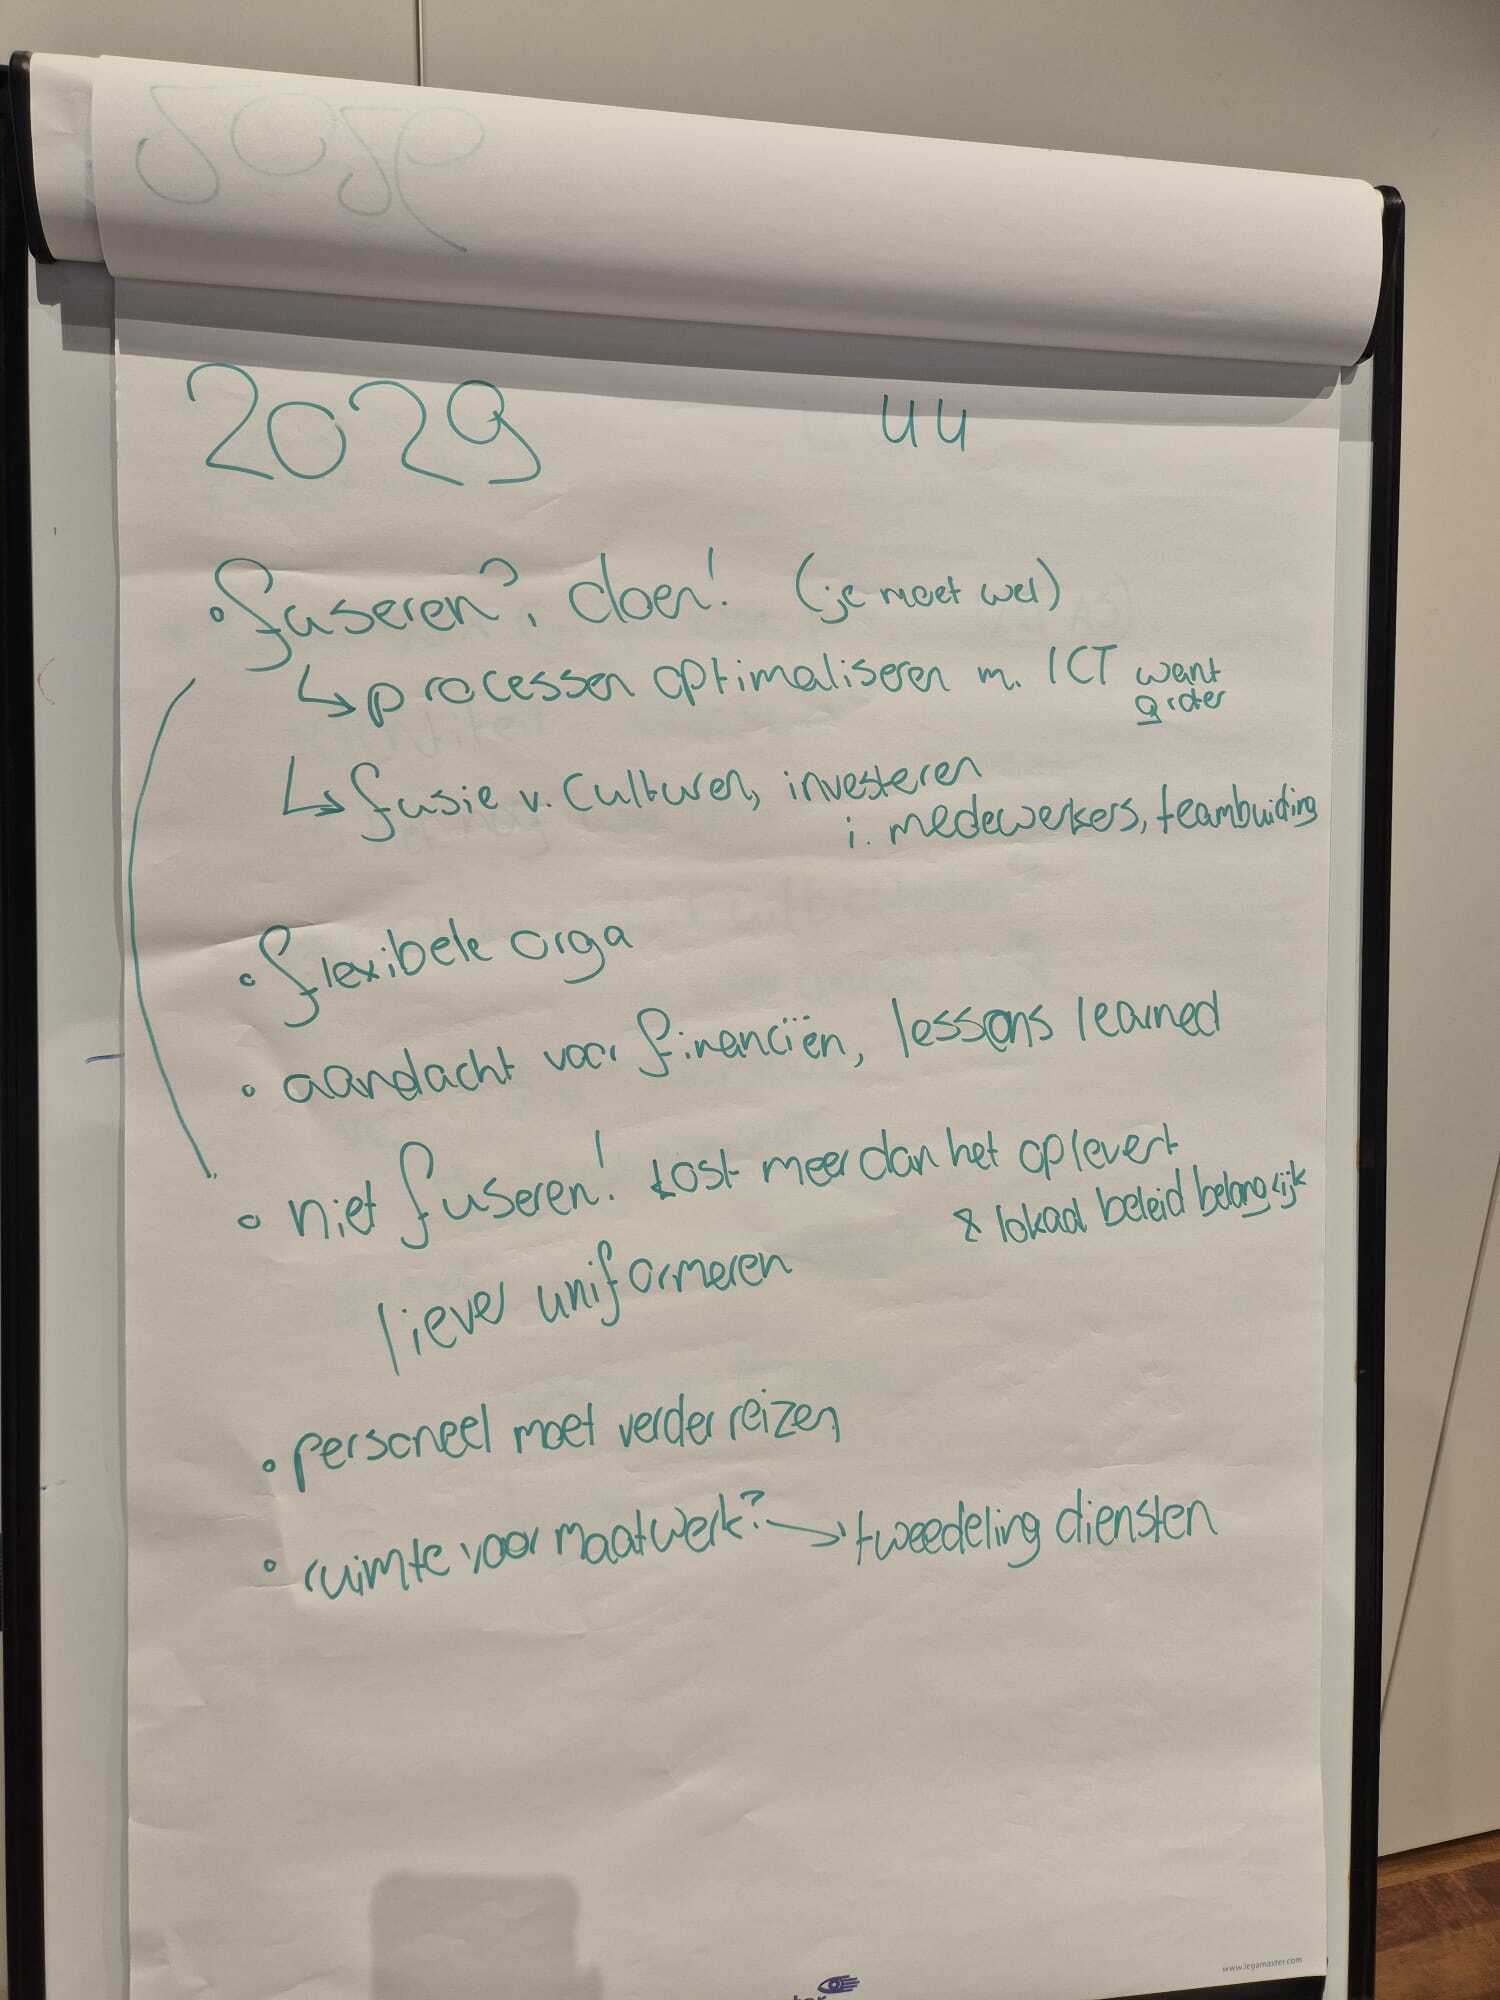 2029
44
• fuseren?, doen! (je moet wel)
↳ processen optimaliseren m. ICT want
groter
↳ fusie v. culturen, investeren
i. medewerkers, teambuiding
• flexibele orga
• aandacht voor financiën, lessons learned
• niet fuseren! kost meer dan het oplevert
& lokaal beleid belangrijk
liever uniformeren
• personeel moet verder reizen
• ruimte voor maatwerk? → tweedeling diensten
www.legamaster.com